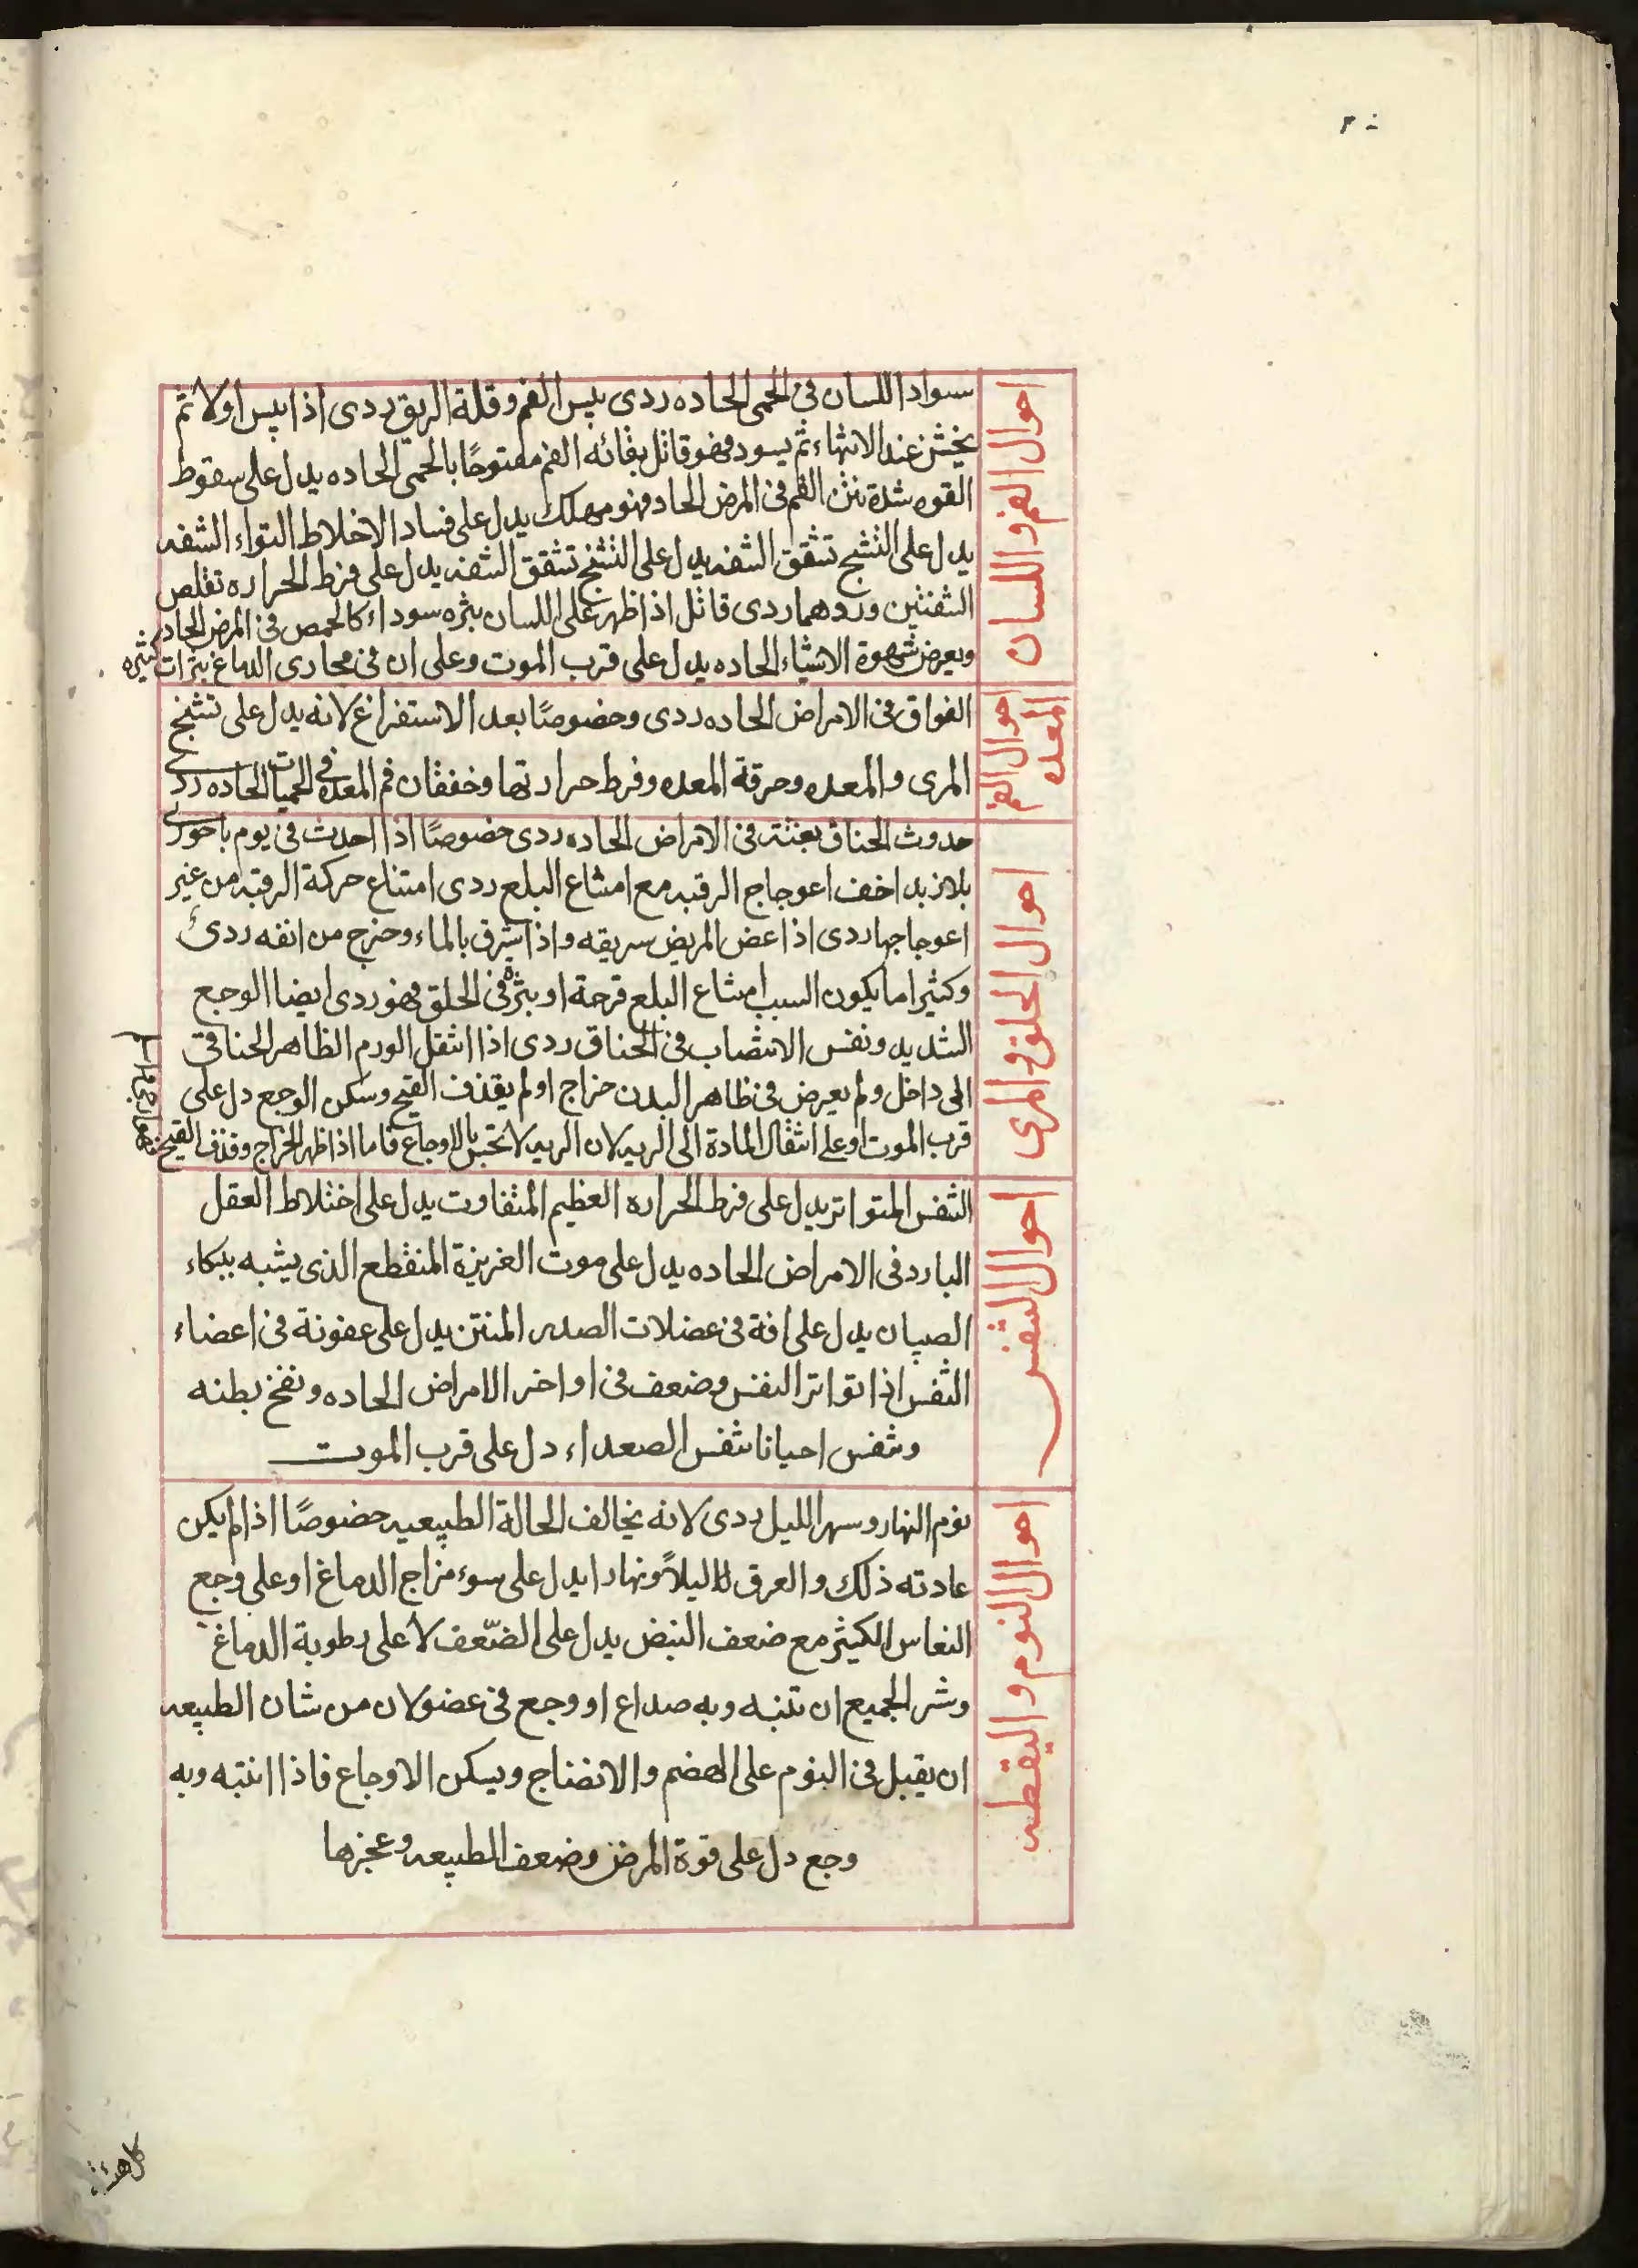 ٣٠
احوال الفم واللسان
سواد اللسان فى الحمى الحاده ردى يبس الفم وقلة الريق ردى اذا يبس اولا ثم
يخشن عند الانتهاء ثم يسود فهو قاتل بقائه الفم مفتوحًا بالحمى الحاده يدل على سقوط
القوه شدة نتن الفم فى المرض الحاد فهو مهلك يدل على فساد الاخلاط التواء الشفه
يدل على التشنج تشقق الشفه يدل على التشنج تشقق الشفه يدل على فرط الحراره تقلص
الشفتين وردهما ردى قاتل اذا ظهر على اللسان بثره سوداء كالحمص فى المرض الحاد
ويعرض شهوة الاشياء الحاده يدل على قرب الموت وعلى ان فى مجارى الدماغ بثرات كثيره
احوال الفم
المعده
الفواق فى الامراض الحاده ردى وخصوصًا بعد الاستفراغ لانه يدل على تشنج
المرى والمعده وحرقة المعده وفرط حرارتها وخفقان فم المعده فى الحميات الحاده ردى
احوال الحلق والمرى
حدوث الخناق بغتته فى الامراض الحاده ردى خصوصًا اذا احدث فى يوم باحورى
بلا زبد اخف اعوجاج الرقبه مع امتناع البلع ردى امتناع حركة الرقبه من غير
اعوجاجها ردى اذا عض المريض بريقه واذا شرق بالماء وخرج من انفه ردئ
وكثيرا ما يكون السبب امتناع البلع قرحة او بثره فى الحلق فهو ردى ايضا الوجع
الشديد ونفس الانتصاب فى الخناق ردى اذا انتقل الورم الظاهر الخناقى
الى داخل ولم يعرض فى ظاهر البدن خراج او لم يقذف القيح وسكن الوجع دل على
قرب الموت او على انتقال المادة الى الريه لان الريه لا تحس بالاوجاع فاما اذا ظهر الخراج وقذف القيح
احوال النفس
التفس المتواتر يدل على فرط الحراره العظيم المتفاوت يدل على اختلاط العقل
البارد فى الامراض الحاده يدل على موت الغريزة المنقطع الذى يشبه ببكاء
الصبيان يدل على افة فى عضلات الصدر المنتن يدل على عفونة فى اعضاء
التفس اذا تواتر النفس وضعف فى اواخر الامراض الحاده ونفخ بطنه
وتنفس احيانا تنفس الصعداء دل على قرب الموت
احوال النوم واليقظه
نوم النهار وسهر الليل ردى لانه يخالف الحالة الطبيعيه خصوصًا اذا لم يكن
عادته ذلك والعرق ليلاً ونهارا يدل على سوء مزاج الدماغ او على وجع
النعاس الكثير مع ضعف النبض يدل على الضعف لا على رطوبة الدماغ
وشر الجميع ان تنبه وبه صداع او وجع فى عضو لان من شان الطبيعه
ان يقبل فى النوم على الهضم والانضاج ويسكن الاوجاع فاذا انتبه وبه
وجع دل على قوة المرض وضعف الطبيعه وعجزها